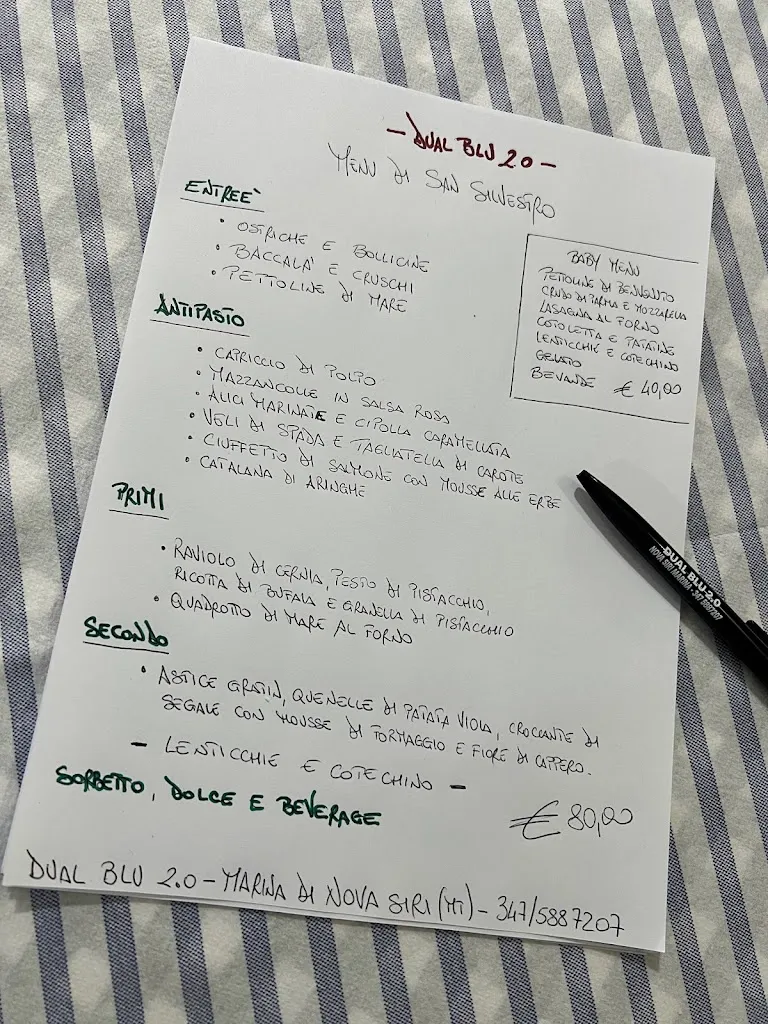 - DUAL BLU 2.0 -
MENU DI SAN SILVESTRO
ENTREE'
• OSTRICHE E BOLLICINE
• BACCALA' E CRUSCHI
• PETTOLINE DI MARE
BABY MENU
PETTOLINE DI BENVENUTO
CRUDO DI PARMA E MOZZARELLA
LASAGNA AL FORNO
COTOLETTA E PATATINE
LENTICCHIE E COTECHINO
GELATO
BEVANDE € 40,00
ANTIPASTO
• CAPRICCIO DI POLPO
• MAZZANCOLLE IN SALSA ROSA
• ALICI MARINATE E CIPOLLA CARAMELLATA
• VELI DI SPADA E TAGLIATELLA DI CAROTE
• CIUFFETTO DI SALMONE CON MOUSSE ALLE ERBE
• CATALANA DI ARINGHE
PRIMI
• RAVIOLO DI CERNIA, PESTO DI PISTACCHIO,
RICOTTA DI BUFALA E GRANELLA DI PISTACCHIO
• QUADROTTO DI MARE AL FORNO
SECONDO
• ASTICE GRATIN, QUENELLE DI PATATA VIOLA, CROCCANTE DI
SEGALE CON MOUSSE DI FORMAGGIO E FIORE DI CAPPERO.
- LENTICCHIE E COTECHINO -
SORBETTO, DOLCE E BEVERAGE
€ 80,00
DUAL BLU 2.0 - MARINA DI NOVA SIRI (MT) - 347/5887207
DUAL BLU 2.0
NOVA SIRI MARINA - 347 5887207